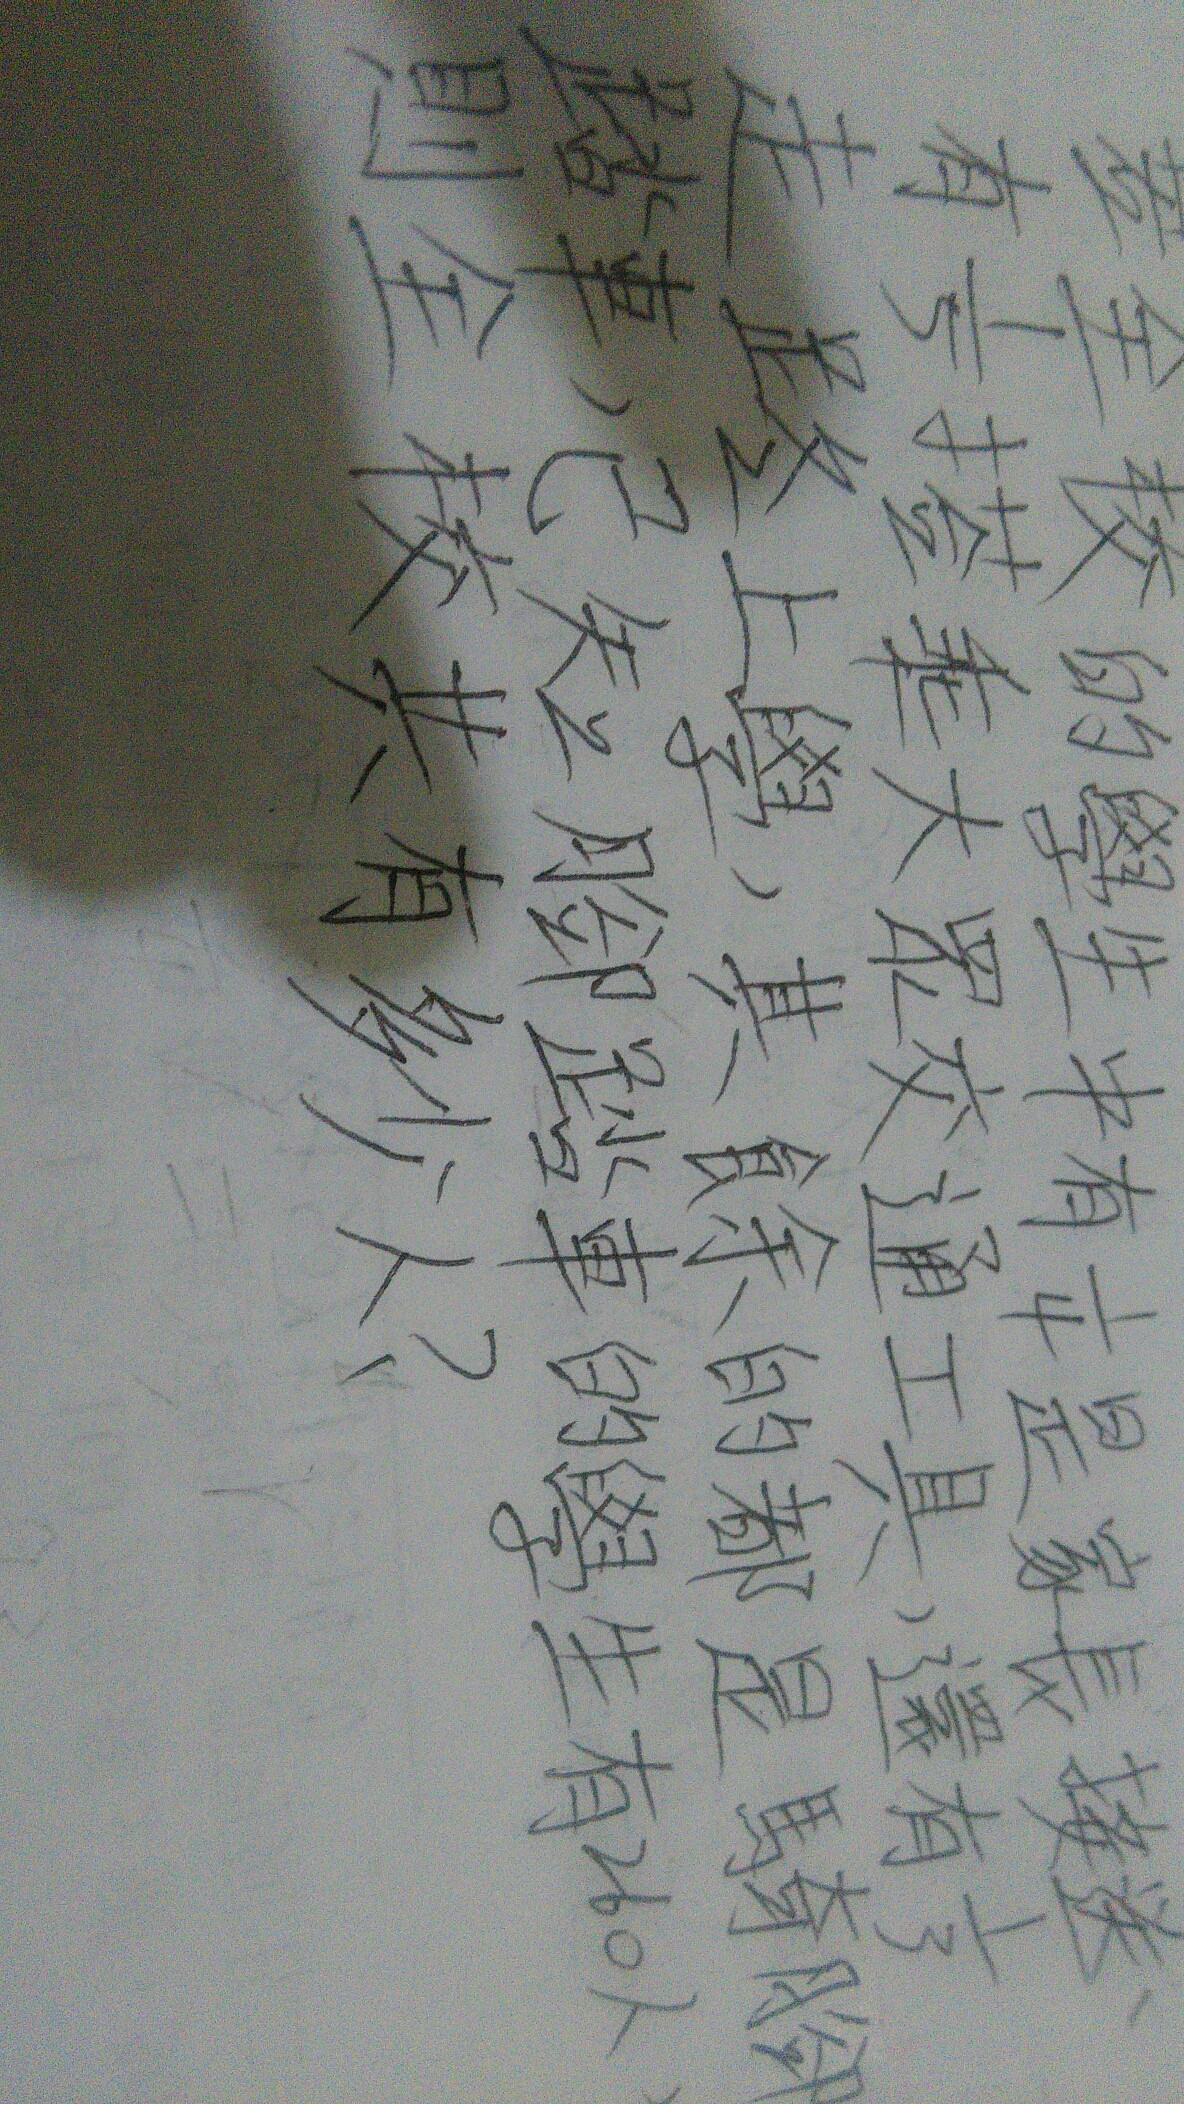 若全校的學生中有1/4是家長接送、
有1/3搭乘大眾交通工具，還有1/5
走路上學，其餘的都是騎腳
踏車，已知腳踏車的學生有260人，
則全校共有多少人？